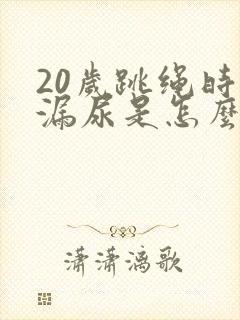 20歲跳绳時
漏尿是怎麼
瀟瀟漓歌